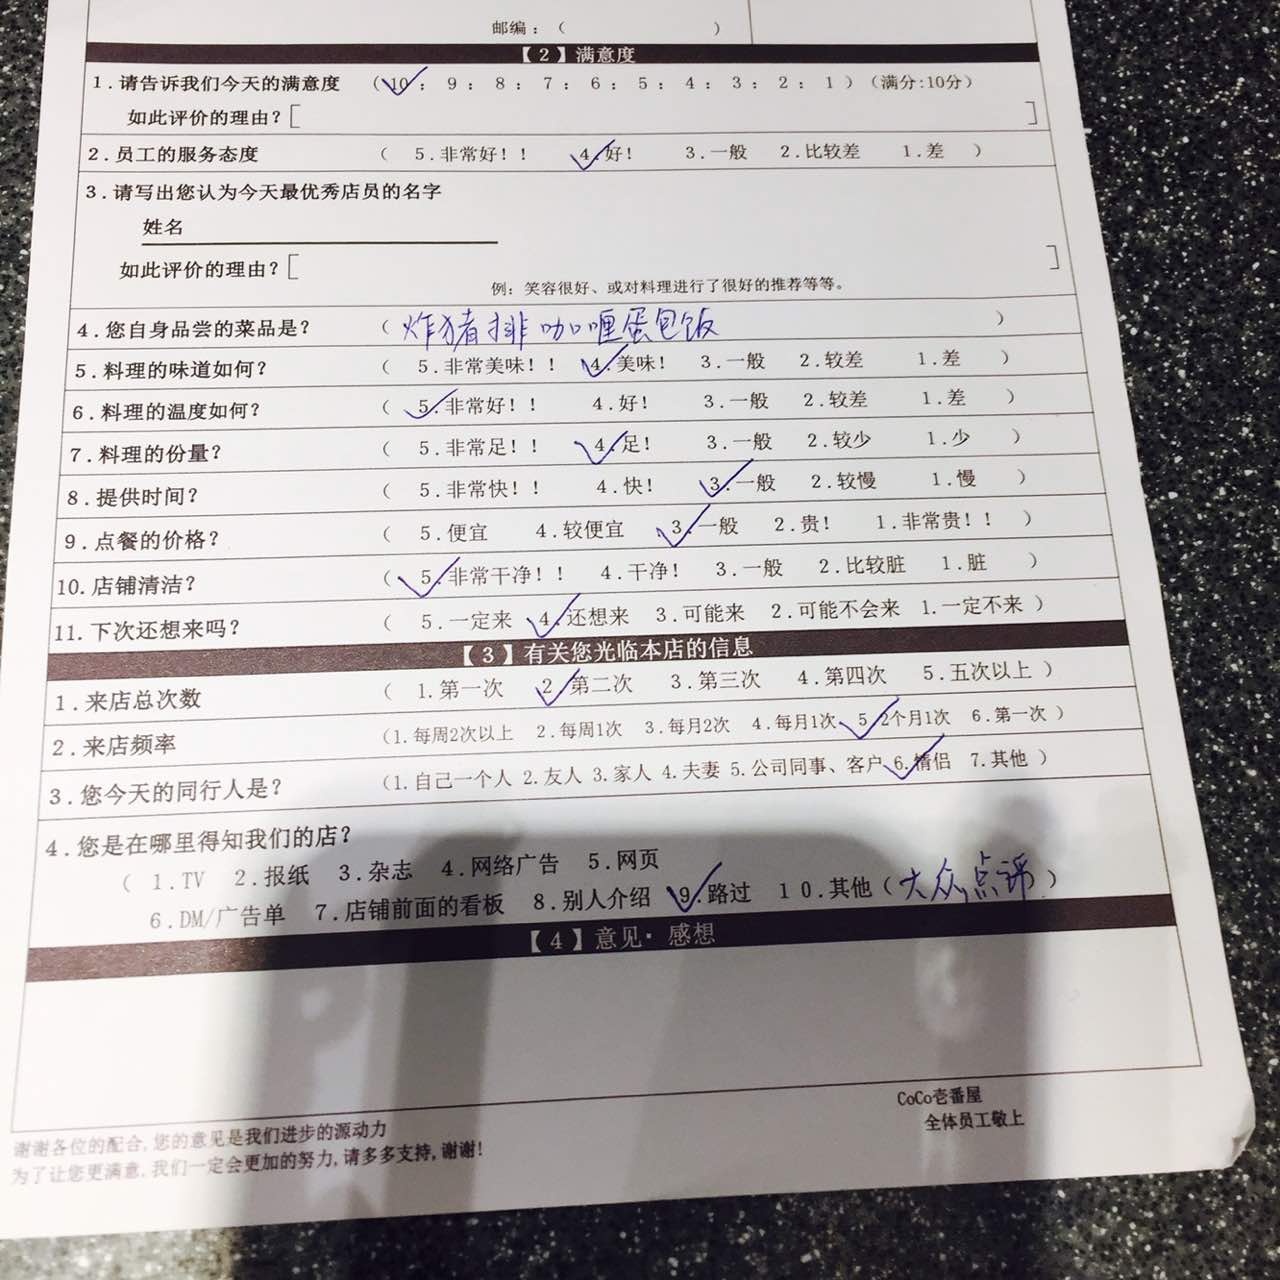 邮编：（ ）
【2】满意度
1.请告诉我们今天的满意度 （10： 9： 8： 7： 6： 5： 4： 3： 2： 1）（满分:10分）
如此评价的理由？[ ]
2.员工的服务态度 （ 5.非常好！！ 4.好！ 3.一般 2.比较差 1.差 ）
3.请写出您认为今天最优秀店员的名字
姓名
如此评价的理由？[ ]
例：笑容很好、或对料理进行了很好的推荐等等。
4.您自身品尝的菜品是？ （ 炸猪排咖喱蛋包饭 ）
5.料理的味道如何？ （ 5.非常美味！！ 4.美味！ 3.一般 2.较差 1.差 ）
6.料理的温度如何？ （ 5.非常好！！ 4.好！ 3.一般 2.较差 1.差 ）
7.料理的份量？ （ 5.非常足！！ 4.足！ 3.一般 2.较少 1.少 ）
8.提供时间？ （ 5.非常快！！ 4.快！ 3.一般 2.较慢 1.慢 ）
9.点餐的价格？ （ 5.便宜 4.较便宜 3.一般 2.贵！ 1.非常贵！！ ）
10.店铺清洁？ （ 5.非常干净！！ 4.干净！ 3.一般 2.比较脏 1.脏 ）
11.下次还想来吗？ （ 5.一定来 4.还想来 3.可能来 2.可能不会来 1.一定不来 ）
【3】有关您光临本店的信息
1.来店总次数 （ 1.第一次 2.第二次 3.第三次 4.第四次 5.五次以上 ）
2.来店频率 （1.每周2次以上 2.每周1次 3.每月2次 4.每月1次 5.2个月1次 6.第一次 ）
3.您今天的同行人是？ （1.自己一个人 2.友人 3.家人 4.夫妻 5.公司同事、客户 6.情侣 7.其他 ）
4.您是在哪里得知我们的店？
（ 1.TV 2.报纸 3.杂志 4.网络广告 5.网页
6.DM/广告单 7.店铺前面的看板 8.别人介绍 9.路过 10.其他（大众点评）
【4】意见·感想
CoCo壱番屋
全体员工敬上
谢谢各位的配合,您的意见是我们进步的源动力
为了让您更满意,我们一定会更加的努力,请多多支持,谢谢!